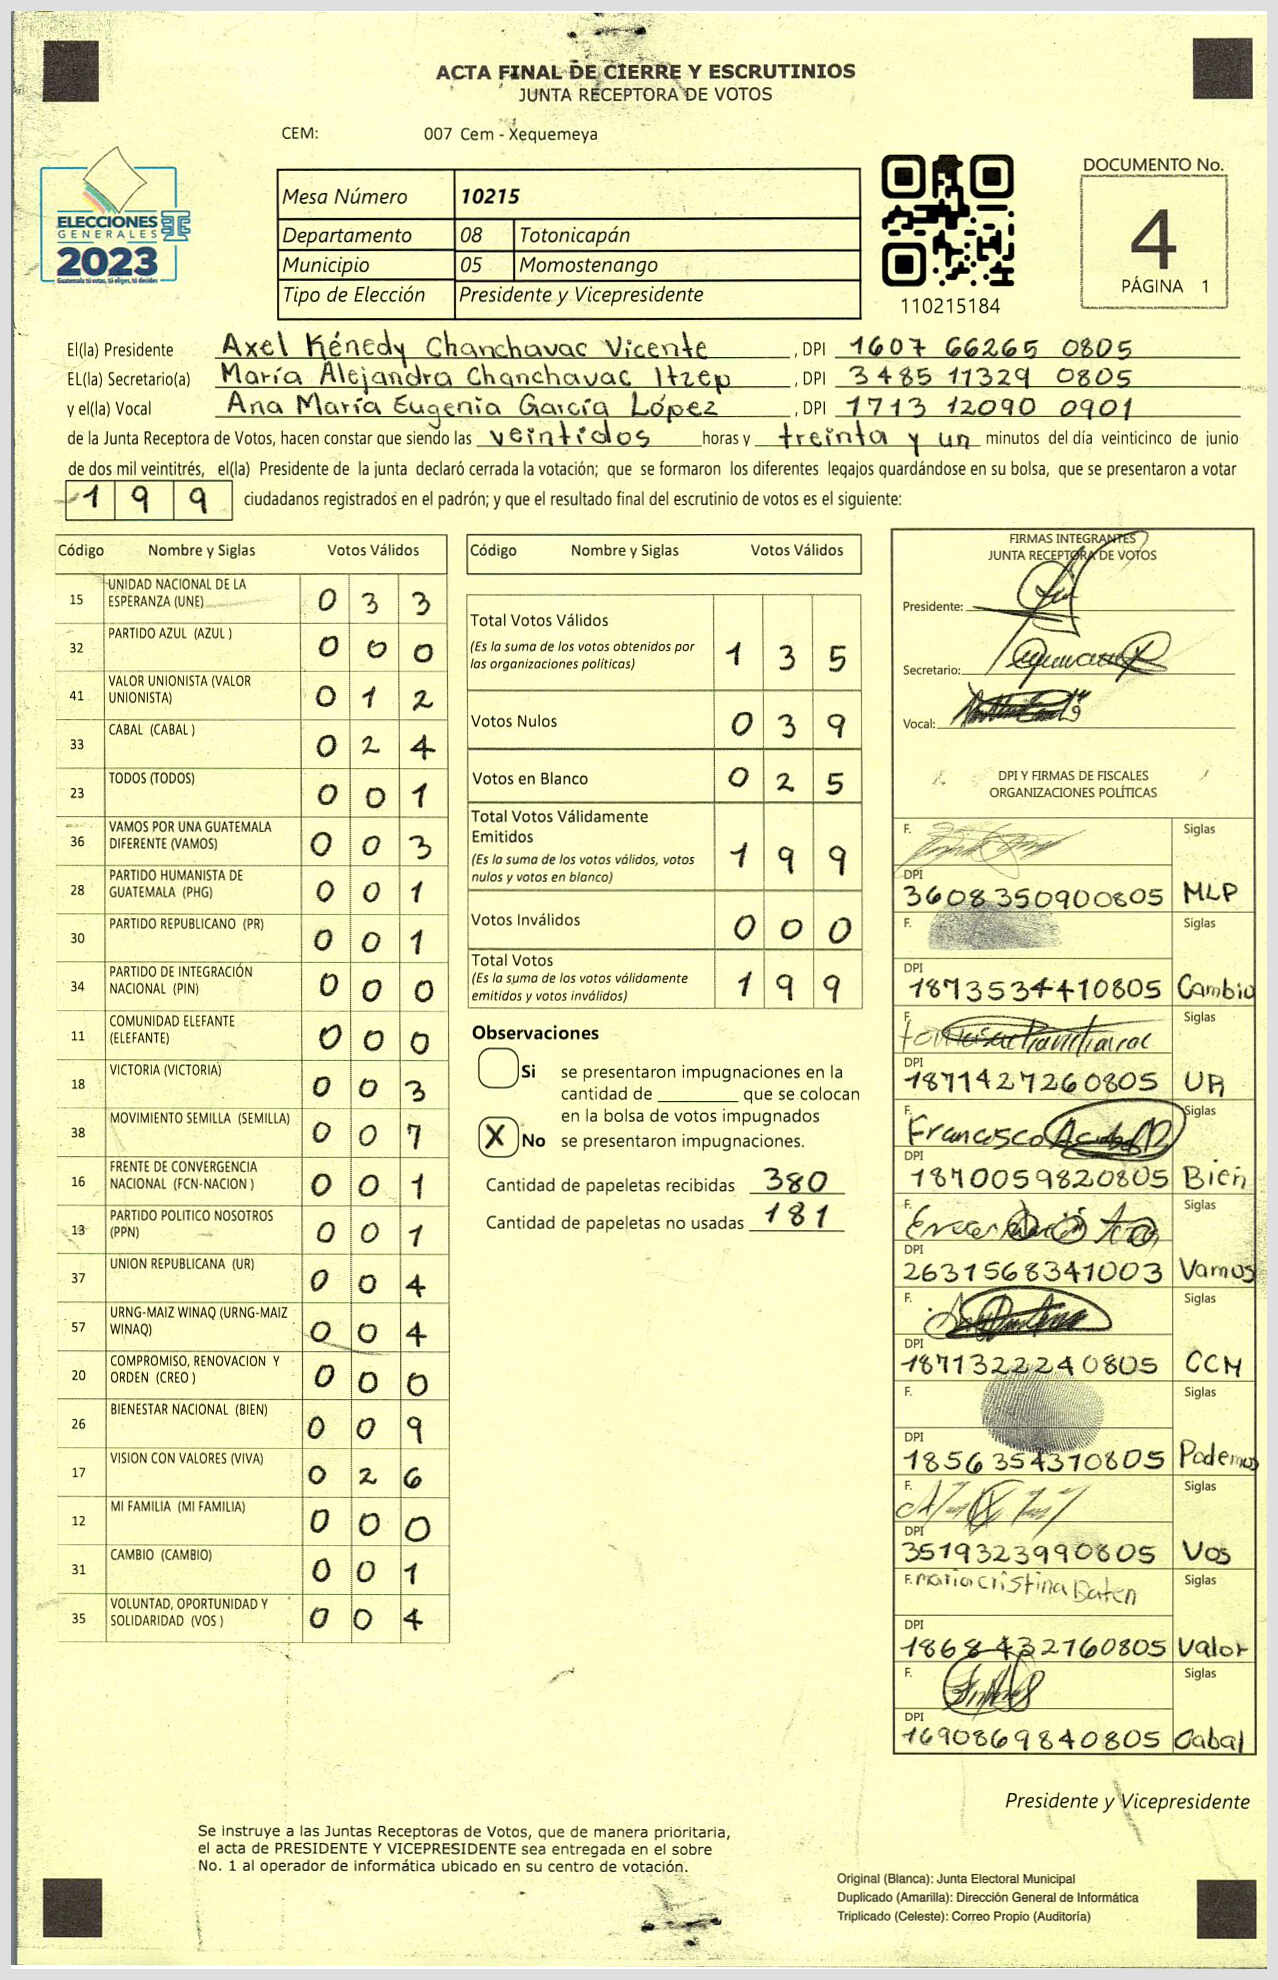 ACTA FINAL DE CIERRE Y ESCRUTINIOS
JUNTA RECEPTORA DE VOTOS
CEM: 007 Cem - Xequemeya
ELECCIONES
GENERALES
2023
Guatemala tú votas, tú eliges, tú decides
Mesa Número 10215
Departamento 08 Totonicapán
Municipio 05 Momostenango
Tipo de Elección Presidente y Vicepresidente
110215184
DOCUMENTO No.
4
PÁGINA 1
El(la) Presidente Axel Kénedy Chanchavac Vicente , DPI 1607 66265 0805
EL(la) Secretario(a) María Alejandra Chanchavac Itzep , DPI 3485 11329 0805
y el(la) Vocal Ana María Eugenia García López , DPI 1713 12090 0901
de la Junta Receptora de Votos, hacen constar que siendo las veintidos horas y treinta y un minutos del día veinticinco de junio
de dos mil veintitrés, el(la) Presidente de la junta declaró cerrada la votación; que se formaron los diferentes legajos guardándose en su bolsa, que se presentaron a votar
199 ciudadanos registrados en el padrón; y que el resultado final del escrutinio de votos es el siguiente:
Código Nombre y Siglas Votos Válidos
15 UNIDAD NACIONAL DE LA ESPERANZA (UNE) 0 3 3
32 PARTIDO AZUL (AZUL ) 0 0 0
41 VALOR UNIONISTA (VALOR UNIONISTA) 0 1 2
33 CABAL (CABAL ) 0 2 4
23 TODOS (TODOS) 0 0 1
36 VAMOS POR UNA GUATEMALA DIFERENTE (VAMOS) 0 0 3
28 PARTIDO HUMANISTA DE GUATEMALA (PHG) 0 0 1
30 PARTIDO REPUBLICANO (PR) 0 0 1
34 PARTIDO DE INTEGRACIÓN NACIONAL (PIN) 0 0 0
11 COMUNIDAD ELEFANTE (ELEFANTE) 0 0 0
18 VICTORIA (VICTORIA) 0 0 3
38 MOVIMIENTO SEMILLA (SEMILLA) 0 0 7
16 FRENTE DE CONVERGENCIA NACIONAL (FCN-NACION ) 0 0 1
13 PARTIDO POLITICO NOSOTROS (PPN) 0 0 1
37 UNION REPUBLICANA (UR) 0 0 4
57 URNG-MAIZ WINAQ (URNG-MAIZ WINAQ) 0 0 4
20 COMPROMISO, RENOVACION Y ORDEN (CREO ) 0 0 0
26 BIENESTAR NACIONAL (BIEN) 0 0 9
17 VISION CON VALORES (VIVA) 0 2 6
12 MI FAMILIA (MI FAMILIA) 0 0 0
31 CAMBIO (CAMBIO) 0 0 1
35 VOLUNTAD, OPORTUNIDAD Y SOLIDARIDAD (VOS ) 0 0 4
Código Nombre y Siglas Votos Válidos
Total Votos Válidos 1 3 5
(Es la suma de los votos obtenidos por
las organizaciones políticas)
Votos Nulos 0 3 9
Votos en Blanco 0 2 5
Total Votos Válidamente
Emitidos 1 9 9
(Es la suma de los votos válidos, votos
nulos y votos en blanco)
Votos Inválidos 0 0 0
Total Votos 1 9 9
(Es la suma de los votos válidamente
emitidos y votos inválidos)
Observaciones
Si se presentaron impugnaciones en la
cantidad de ________ que se colocan
en la bolsa de votos impugnados
X No se presentaron impugnaciones.
Cantidad de papeletas recibidas 380
Cantidad de papeletas no usadas 181
FIRMAS INTEGRANTES
JUNTA RECEPTORA DE VOTOS
Presidente:
Secretario:
Vocal:
DPI Y FIRMAS DE FISCALES
ORGANIZACIONES POLÍTICAS
F. Siglas
DPI
3608350900805 MLP
F. Siglas
DPI
1873534410805 Cambio
F. Siglas
DPI
1871427260805 UR
F. Francisco Siglas
DPI
1870059820805 Bien
F. Siglas
DPI
2631568341003 Vamos
F. Siglas
DPI
1871322240805 CCM
F. Siglas
DPI
1856354370805 Podemos
F. Siglas
DPI
3519323990805 Vos
F. maria cristina Baten Siglas
DPI
1868432760805 Valor
F. Siglas
DPI
1690869840805 Cabal
Presidente y Vicepresidente
Se instruye a las Juntas Receptoras de Votos, que de manera prioritaria,
el acta de PRESIDENTE Y VICEPRESIDENTE sea entregada en el sobre
No. 1 al operador de informática ubicado en su centro de votación.
Original (Blanca): Junta Electoral Municipal
Duplicado (Amarilla): Dirección General de Informática
Triplicado (Celeste): Correo Propio (Auditoría)